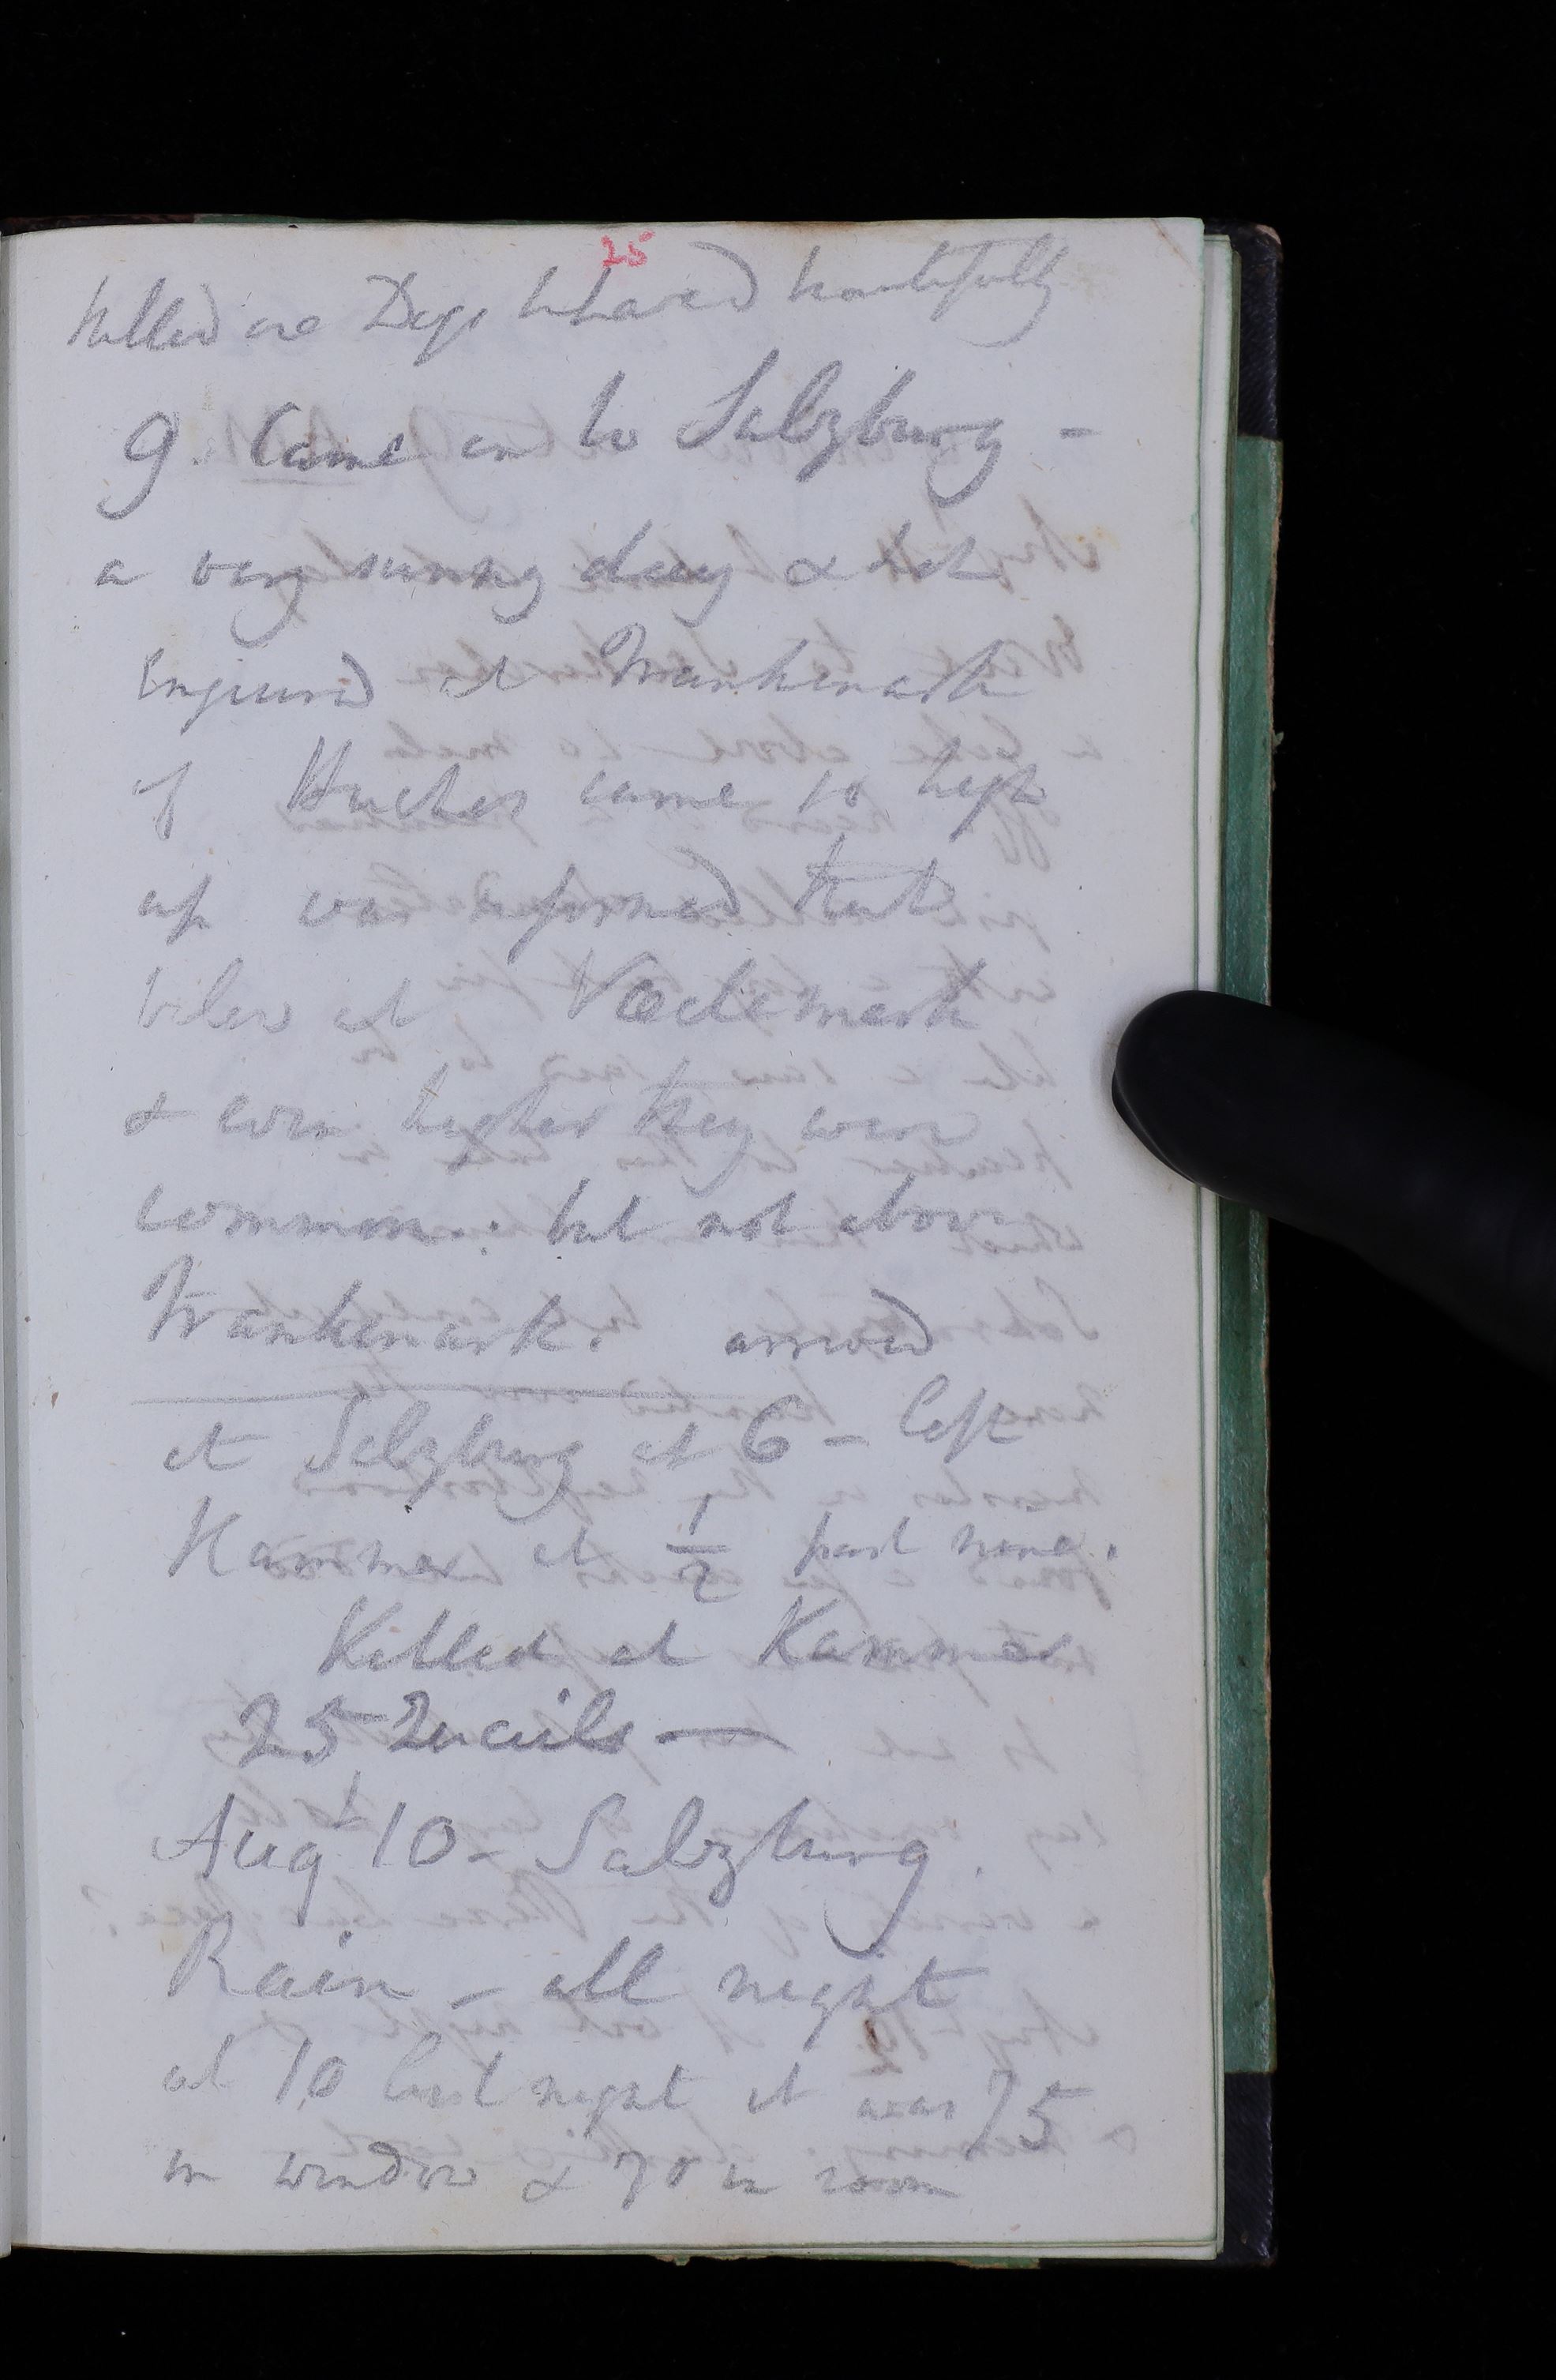 25
killed one Dogs behaved beautifully
9. Came on to Salzburg -
a very sunny day & hot
Enquired at Frankenmark
if Huchos came so high
up was informed that
below at Vöclemark
& even higher they were
common. but not above
Frankenark. arrived
at Salzburg at 6 - left
Kammer at 1/2 past nine.
Killed at Kammer
25 Quails —
Augt 10 - Salzburg.
Rain - all night
at 10 last night it was 75
in window & 70 in room